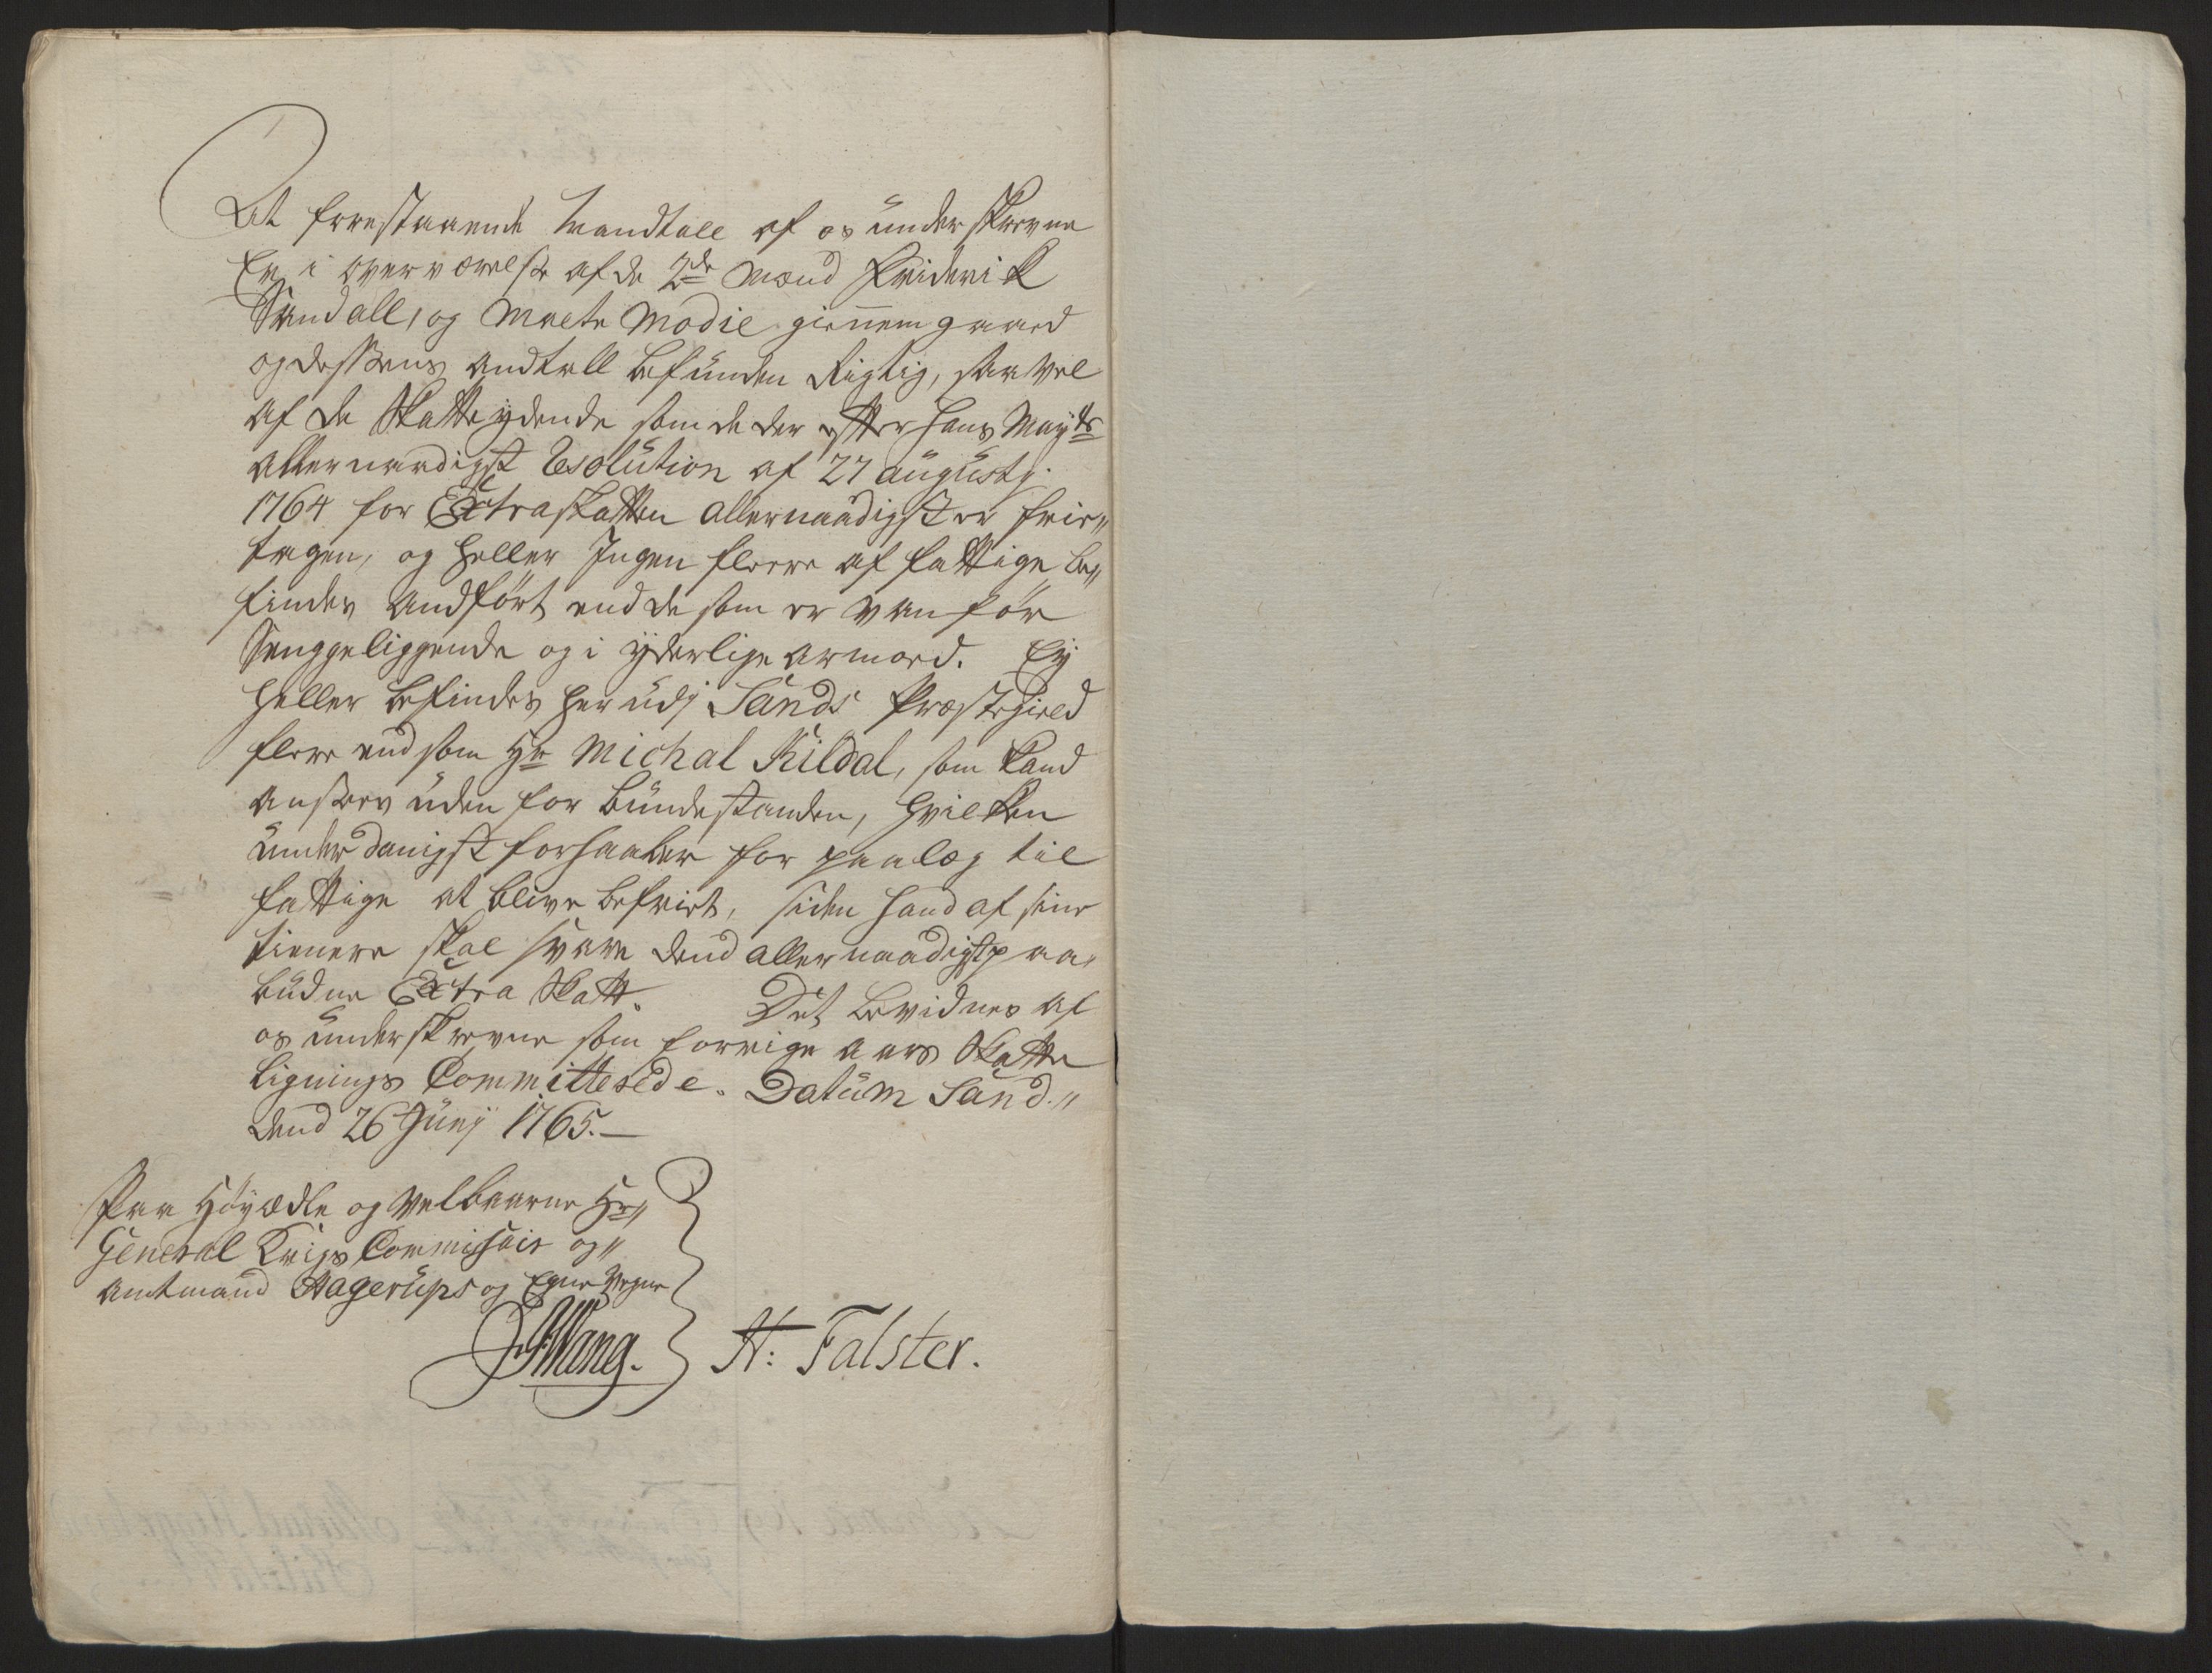 At forestaaende Mandtall af os underskrevne
Er i overværelse af de 2de Mænd Friderik
Sandall, og Maete Modie giennemgaaed
og dessens andtall befunden Rigtig, saavel
af de Skatteydende som de der efter Hans Mayts
allernaadigst Resolution af 27 augustj
1764 for Extraskatten allernaadigst er frie„
tagen, og heller Ingen fleere af fattige be„
findes andført end de som er vanføre
Senggeliggende og i yderlige armoed. Ey
heller befindes her udj Sands Præstegield
flere end som Hr Michal Kildal, som kand
ansees uden for bundestanden, hvilken
underdanigst forhaaber for paalæg til
fattige at blive befriet, siden hand af sine
tienere skal svare dend allernaadigst paa„
budne Extra Skatt. Det bevidnes af
os underskrevne som forrige aars Skatte
Lignings Committerede. Datum Sand„
dend 26 Junij 1765.—
Paa Høyædle og Velbaarne Hr„
General Krigs Commissair og„
Amtmand Hagerups og Egne Vegne
Wang. H: Falster.